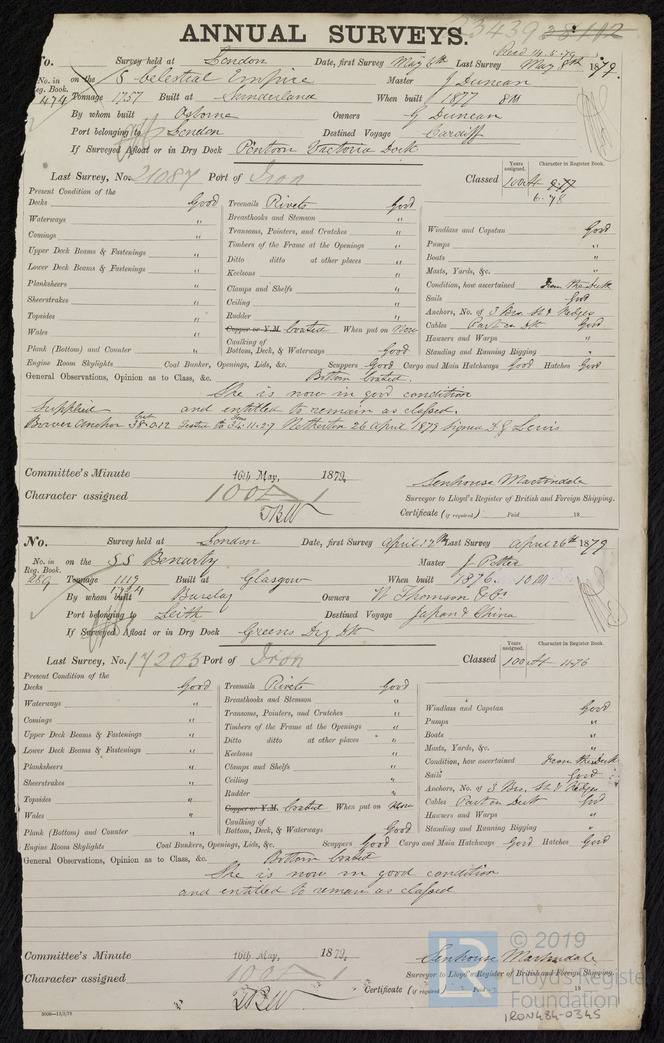 23439 38,182
ANNUAL SURVEYS.
Recd 14.5.79
No. Survey held at London Date, first Survey May 6th Last Survey May 8th 1879.
No. in Reg. Book. on the S Celestial Empire Master J Duncan
474 Tonnage 1757 Built at Sunderland When built 1877 8M
By whom built Osborne Owners G Duncan
Port belonging to London Destined Voyage Cardiff
If Surveyed Afloat or in Dry Dock Pontoon Victoria Dock
Last Survey, No. 21087 Port of Iron Classed Years assigned. 100 Character in Register Book. A1 9.77
6.78
Present Condition of the
Decks Good Treenails Rivets Good
Waterways " Breasthooks and Stemson " Windlass and Capstan Good
Comings " Transoms, Pointers, and Crutches " Pumps "
Upper Deck Beams & Fastenings " Timbers of the Frame at the Openings " Boats "
Lower Deck Beams & Fastenings " Ditto ditto at other places " Masts, Yards, &c. "
Planksheers " Keelsons " Condition, how ascertained From the Deck
Sheerstrakes " Clamps and Shelfs " Sails Good
Topsides " Ceiling " Anchors, No. of 3 Brs. St & Kedges
Wales " Rudder " Cables Part on dk Good
Plank (Bottom) and Counter " Copper or Y.M. Coated When put on Now Hawsers and Warps "
Caulking of Bottom, Deck, & Waterways Good Standing and Running Rigging "
Engine Room Skylights Coal Bunker, Openings, Lids, &c. Scuppers Good Cargo and Main Hatchways Good Hatches Good
General Observations, Opinion as to Class, &c. Bottom Coated.
She is now in good condition
Supplied and entitled to remain as classed.
Bower Anchor 38.0.12 Tested to 34.11.2.7 Netherton 26 April 1879 signed Lewis
Committee's Minute 16th May, 1879.
Character assigned 100 A 1 Senhouse Martindale
Surveyor to Lloyd's Register of British and Foreign Shipping.
TBW Certificate (if required) Paid 18
No. Survey held at London Date, first Survey April 17th Last Survey April 26th 1879
No. in Reg. Book. on the SS Benarty Master J Potter
289 Tonnage 1119 Built at Glasgow When built 1876. 10M
1794
By whom built Barclay Owners W Thomson & Co
Port belonging to Leith Destined Voyage Japan & China
If Surveyed Afloat or in Dry Dock Greens Dry Dk
Last Survey, No. 17203 Port of Iron Classed Years assigned. 100 Character in Register Book. A1 11.76
Present Condition of the
Decks Good Treenails Rivets Good
Waterways " Breasthooks and Stemson " Windlass and Capstan Good
Comings " Transoms, Pointers, and Crutches " Pumps "
Upper Deck Beams & Fastenings " Timbers of the Frame at the Openings " Boats "
Lower Deck Beams & Fastenings " Ditto ditto at other places " Masts, Yards, &c. "
Planksheers " Keelsons " Condition, how ascertained From the Deck
Sheerstrakes " Clamps and Shelfs " Sails Good
Topsides " Ceiling " Anchors, No. of 3 Brs. St & Kedges
Wales " Rudder " Cables Part on Deck Good
Plank (Bottom) and Counter " Copper or Y.M. Coated When put on Now Hawsers and Warps "
Caulking of Bottom, Deck, & Waterways Good Standing and Running Rigging "
Engine Room Skylights Coal Bunkers, Openings, Lids, &c. Scuppers Good Cargo and Main Hatchways Good Hatches Good
General Observations, Opinion as to Class, &c. Bottom Coated
She is now in good condition
and entitled to remain as classed
Committee's Minute 16th May, 1879.
Character assigned 100 A 1 Senhouse Martindale
Surveyor to Lloyd's Register of British and Foreign Shipping.
TBW Certificate (if required) Paid 18
© 2019
Lloyd's Register
Foundation
IRON484-0345